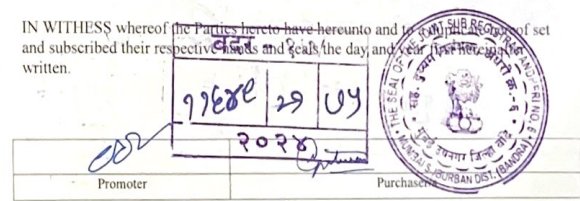 IN WITHESS whereof the Parties hereto have hereunto and to duplicate of set
and subscribed their respective hands and seals the day and year first hereinabove
written.
११६४९ | २१ | ७५
२०२४
THE SEAL OF THE JOINT SUB REGISTRAR ANDHERI NO. 6
MUMBAI SUBURBAN DIST. (BANDRA)
मुंबई उपनगर जिल्हा
Promoter
Purchaser/s